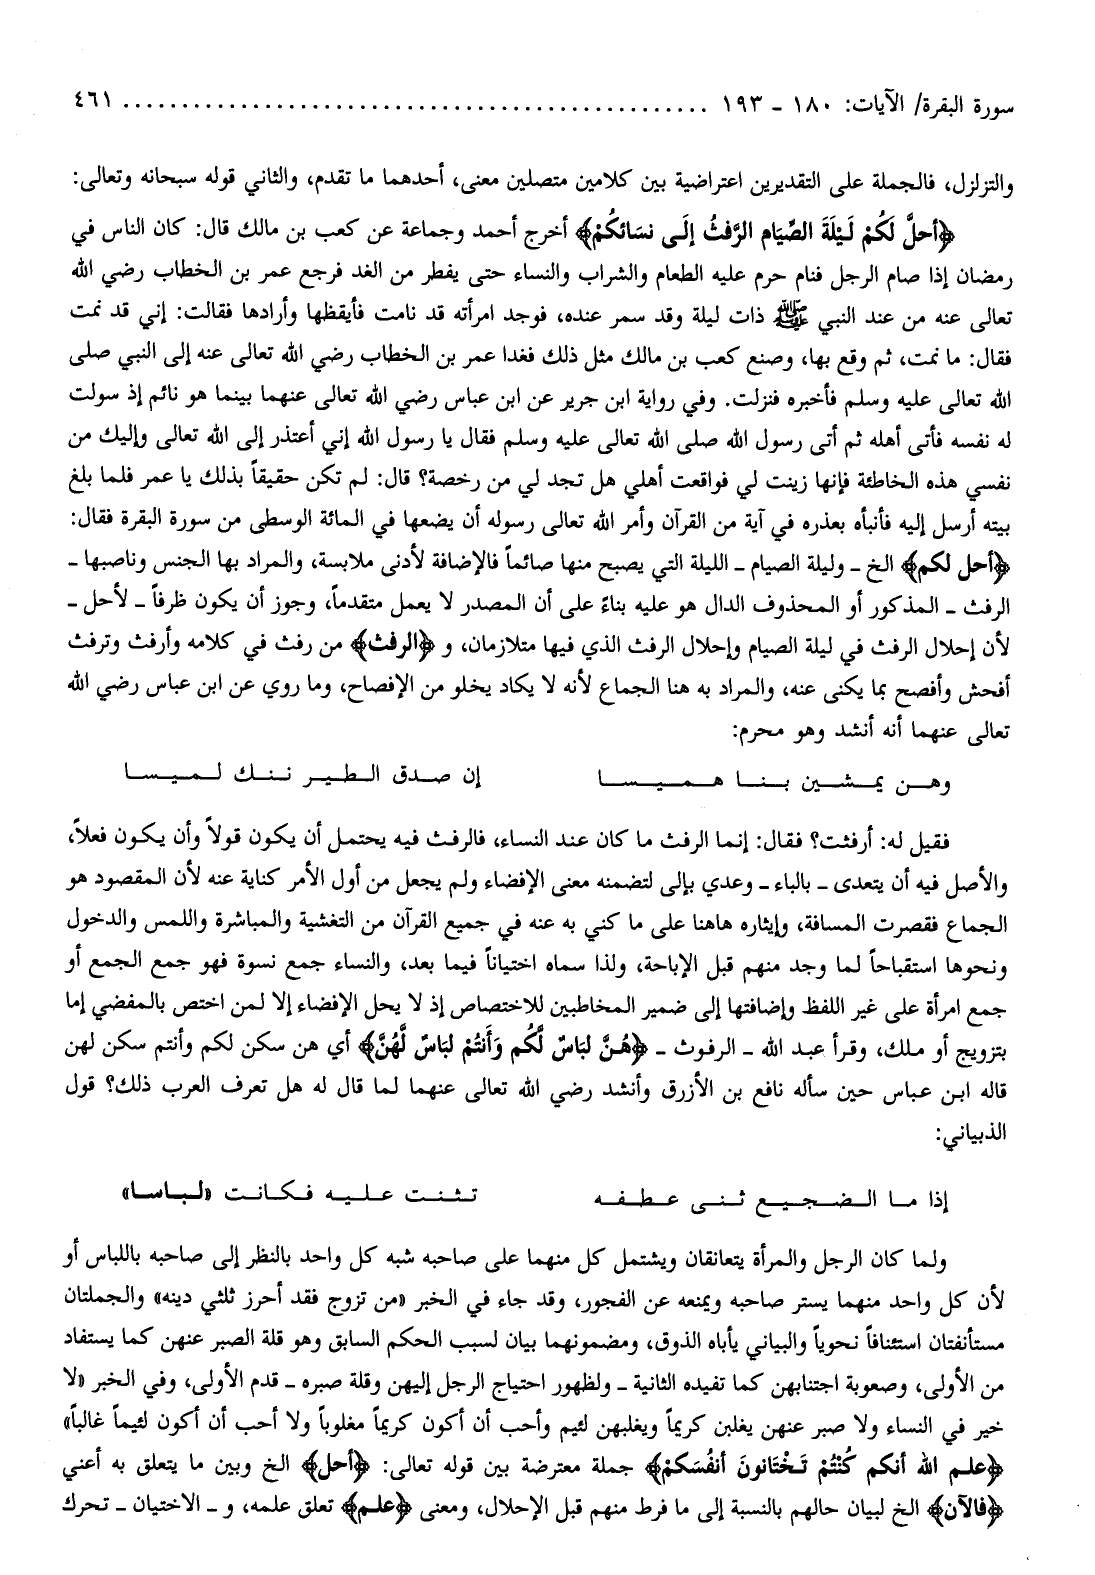 سورة البقرة/ الآيات: ١٨٠ ـ ١٩٣ ................................................ ٤٦١
والتزلزل، فالجملة على التقديرين اعتراضية بين كلامين متصلين معنى، أحدهما ما تقدم، والثاني قوله سبحانه وتعالى:
﴿أحلَّ لَكُمْ لَيْلَةَ الصِّيَام الرَّفثُ إلَى نسَائكُمْ﴾ أخرج أحمد وجماعة عن كعب بن مالك قال: كان الناس في
رمضان إذا صام الرجل فنام حرم عليه الطعام والشراب والنساء حتى يفطر من الغد فرجع عمر بن الخطاب رضي الله
تعالى عنه من عند النبي ﷺ ذات ليلة وقد سمر عنده، فوجد امرأته قد نامت فأيقظها وأرادها فقالت: إني قد نمت
فقال: ما نمت، ثم وقع بها، وصنع كعب بن مالك مثل ذلك فغدا عمر بن الخطاب رضي الله تعالى عنه إلى النبي صلى
الله تعالى عليه وسلم فأخبره فنزلت. وفي رواية ابن جرير عن ابن عباس رضي الله تعالى عنهما بينما هو نائم إذ سولت
له نفسه فأتى أهله ثم أتى رسول الله صلى الله تعالى عليه وسلم فقال يا رسول الله إني أعتذر إلى الله تعالى وإليك من
نفسي هذه الخاطئة فإنها زينت لي فواقعت أهلي هل تجد لي من رخصة؟ قال: لم تكن حقيقاً بذلك يا عمر فلما بلغ
بيته أرسل إليه فأنبأه بعذره في آية من القرآن وأمر الله تعالى رسوله أن يضعها في المائة الوسطى من سورة البقرة فقال:
﴿أحل لكم﴾ الخ ـ وليلة الصيام ـ الليلة التي يصبح منها صائماً فالإضافة لأدنى ملابسة، والمراد بها الجنس وناصبها ـ
الرفث ـ المذكور أو المحذوف الدال هو عليه بناءً على أن المصدر لا يعمل متقدماً، وجوز أن يكون ظرفاً ـ لأحل ـ
لأن إحلال الرفث في ليلة الصيام وإحلال الرفث الذي فيها متلازمان، و ﴿الرفث﴾ من رفث في كلامه وأرفث وترفث
أفحش وأفصح بما يكنى عنه، والمراد به هنا الجماع لأنه لا يكاد يخلو من الإفصاح، وما روي عن ابن عباس رضي الله
تعالى عنهما أنه أنشد وهو محرم:
وهـن يمـشين بـنـا هـمـيـسـا إن صـدق الـطـيـر نـنـك لـمـيـسـا
فقيل له: أرفثت؟ فقال: إنما الرفث ما كان عند النساء، فالرفث فيه يحتمل أن يكون قولاً وأن يكون فعلاً،
والأصل فيه أن يتعدى ـ بالباء ـ وعدي بإلى لتضمنه معنى الإفضاء ولم يجعل من أول الأمر كناية عنه لأن المقصود هو
الجماع فقصرت المسافة، وإيثاره هاهنا على ما كني به عنه في جميع القرآن من التغشية والمباشرة واللمس والدخول
ونحوها استقباحاً لما وجد منهم قبل الإباحة، ولذا سماه اختياناً فيما بعد، والنساء جمع نسوة فهو جمع الجمع أو
جمع امرأة على غير اللفظ وإضافتها إلى ضمير المخاطبين للاختصاص إذ لا يحل الإفضاء إلا لمن اختص بالمفضي إما
بتزويج أو ملك، وقرأ عبد الله ـ الرفوث ـ ﴿هُنَّ لبَاسٌ لَّكُم وَأَنتُمْ لبَاسٌ لَّهُنَّ﴾ أي هن سكن لكم وأنتم سكن لهن
قاله ابن عباس حين سأله نافع بن الأزرق وأنشد رضي الله تعالى عنهما لما قال له هل تعرف العرب ذلك؟ قول
الذبياني:
إذا مـا الـضـجـيـع ثـنى عـطـفـه تـثـنـت عـلـيـه فـكـانـت «لـبـاسـا»
ولما كان الرجل والمرأة يتعانقان ويشتمل كل منهما على صاحبه شبه كل واحد بالنظر إلى صاحبه باللباس أو
لأن كل واحد منهما يستر صاحبه ويمنعه عن الفجور، وقد جاء في الخبر «من تزوج فقد أحرز ثلثي دينه» والجملتان
مستأنفتان استئنافاً نحوياً والبياني يأباه الذوق، ومضمونهما بيان لسبب الحكم السابق وهو قلة الصبر عنهن كما يستفاد
من الأولى، وصعوبة اجتنابهن كما تفيده الثانية ـ ولظهور احتياج الرجل إليهن وقلة صبره ـ قدم الأولى، وفي الخبر «لا
خير في النساء ولا صبر عنهن يغلبن كريماً ويغلبهن لئيم وأحب أن أكون كريماً مغلوباً ولا أحب أن أكون لئيماً غالباً»
﴿علم الله أنكم كُنْتُمْ تَخْتَانونَ أنفُسَكمْ﴾ جملة معترضة بين قوله تعالى: ﴿أحل﴾ الخ وبين ما يتعلق به أعني
﴿فالآن﴾ الخ لبيان حالهم بالنسبة إلى ما فرط منهم قبل الإحلال، ومعنى ﴿علم﴾ تعلق علمه، و ـ الاختيان ـ تحرك